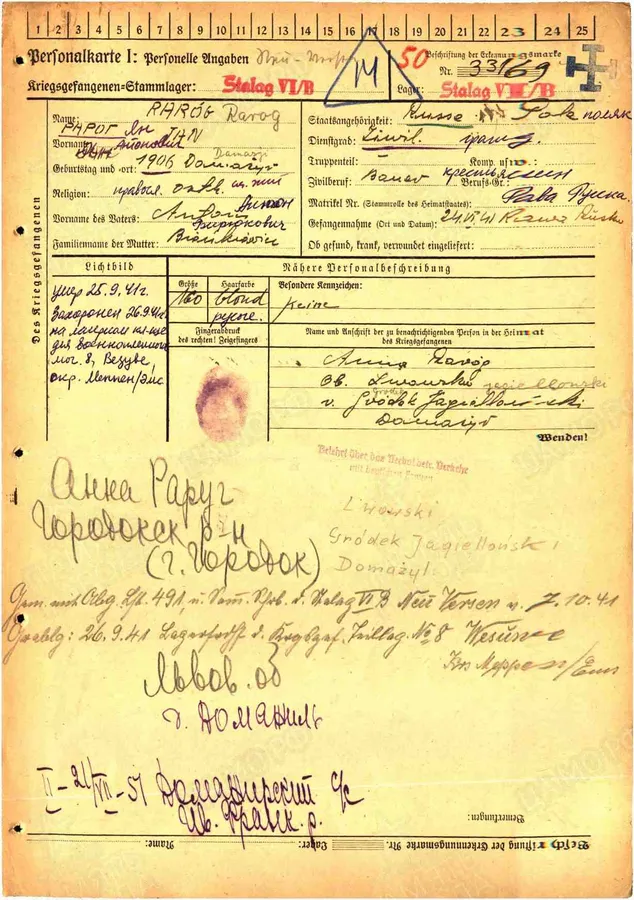 1 2 3 4 5 6 7 8 9 10 11 12 13 14 15 16 17 18 19 20 21 22 23 24 25
Personalkarte I: Personelle Angaben
M
50
Beschriftung der Erkennungsmarke
Nr. 33169
Kriegsgefangenen-Stammlager: Stalag VI/B
Lager: Stalag VI/B
Des Kriegsgefangenen
Name: RARÓG Rarog
РАРОГ ЯН
Vorname: JAN
Антонович
Geburtstag und -ort: 1906 Domażyr
Religion: правосл. orth.
Vorname des Vaters: Anton Антон
Familienname der Mutter:
Staatsangehörigkeit: Russe Pole поляк
Dienstgrad: Zivil. гражд.
Truppenteil: Komp. usw.:
Zivilberuf: Bauer крестьянин Berufs-Gr.:
Matrikel Nr. (Stammrolle des Heimatstaates): Рава Русска
Gefangennahme (Ort und Datum): 24.VI.41 Rawa Ruska
Ob gesund, krank, verwundet eingeliefert:
Lichtbild
Nähere Personalbeschreibung
умер 25.9.41г.
Захоронен 26.9.41г.
на лагерном кл-ще
для военнопленных
мог. 8, Везуве
окр. Меппен/Эмс
Größe
160
Haarfarbe
blond
русые.
Besondere Kennzeichen:
keine
Fingerabdruck
des rechten! Zeigefingers
Name und Anschrift der zu benachrichtigenden Person in der Heimat
des Kriegsgefangenen
Anna Raróg
ob. Lwowska
v. Gródek Jagielloński
Domażyr
Wenden!
Belehrt über das Verbot des Verkehrs
mit deutschen Frauen
Анна Раруг
Городокск р-н
(г. Городок)
Lwowski,
Gródek Jagielloński
Domażyl
Gem. mit Abg. Lst. 491 u. Sam. d. Stalag VI B Neu Versen v. 7.10.41
Grablg: 26.9.41 Lagerfriedh. d. Krgsgef. Zweiglag. No 8 Wesuwe
Krs Meppen/Ems
Львов. об
д. Доманиль
II-21/VII-51 Домажирский с/с
Ив. Франк. р.
Bemerkungen:
Beschriftung der Erkennungsmarke Nr.
Lager:
Name: